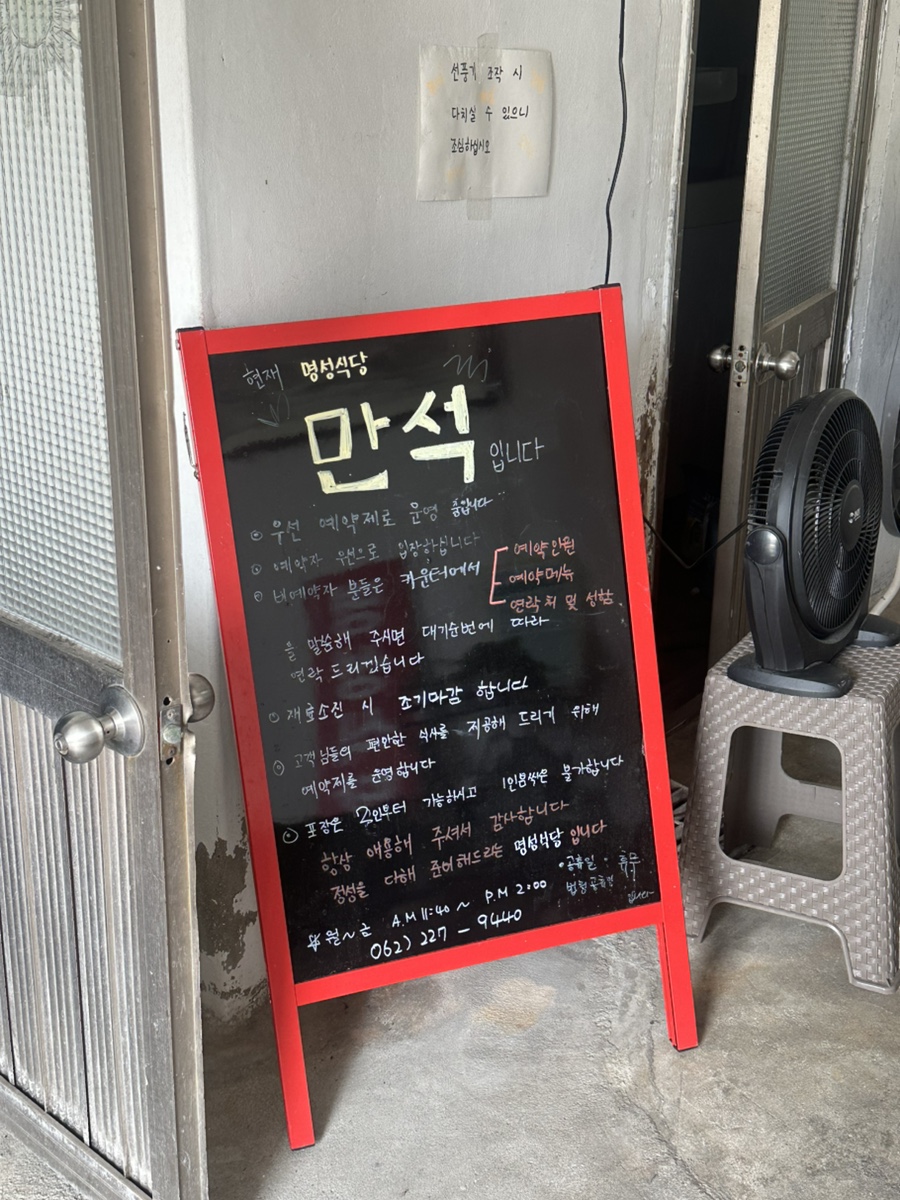 선풍기 조작 시
다치실 수 있으니
조심하십시오
현재 명성식당
만석 입니다
우선 예약제로 운영 중입니다
예약자 우선으로 입장하십니다
비예약자 분들은 카운터에서
예약인원
예약메뉴
연락처 및 성함.
을 말씀해 주시면 대기순번에 따라
연락 드리겠습니다
재료소진 시 조기마감 합니다
고객님들의 편안한 식사를 제공해 드리기 위해
예약제를 운영합니다
포장은 2인부터 가능하시고 1인용싹은 불가합니다
항상 애용해 주셔서 감사합니다
정성을 다해 준비해드리는 명성식당 입니다
월~금 A.M 11:40 ~ P.M 2:00
공휴일 휴무
062) 227-9440